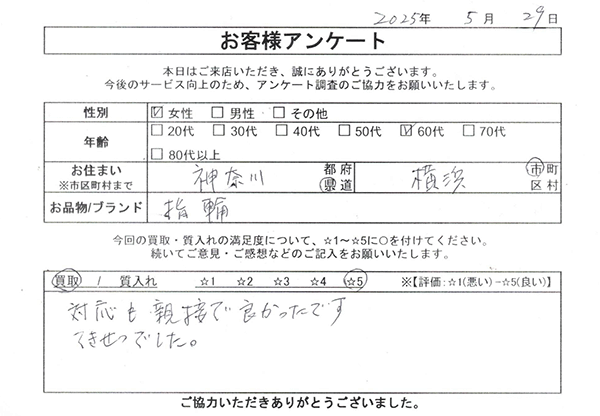 2025年 5月 29日
お客様アンケート
本日はご来店いただき、誠にありがとうございます。
今後のサービス向上のため、アンケート調査のご協力をお願いいたします。
性別 ☑女性 □男性 □その他
年齢 □20代 □30代 □40代 □50代 ☑60代 □70代
□80代以上
お住まい ※市区町村まで 神奈川 都府県道 横浜 市町区村
お品物/ブランド 指輪
今回の買取・質入れの満足度について、☆1～☆5に○を付けてください。
続いてご意見・ご感想などのご記入をお願いいたします。
買取 / 質入れ ☆1 ☆2 ☆3 ☆4 ☆5 ※【評価:☆1(悪い)－☆5(良い)】
対応も親接で良かったです
てきせつでした。
ご協力いただきありがとうございました。